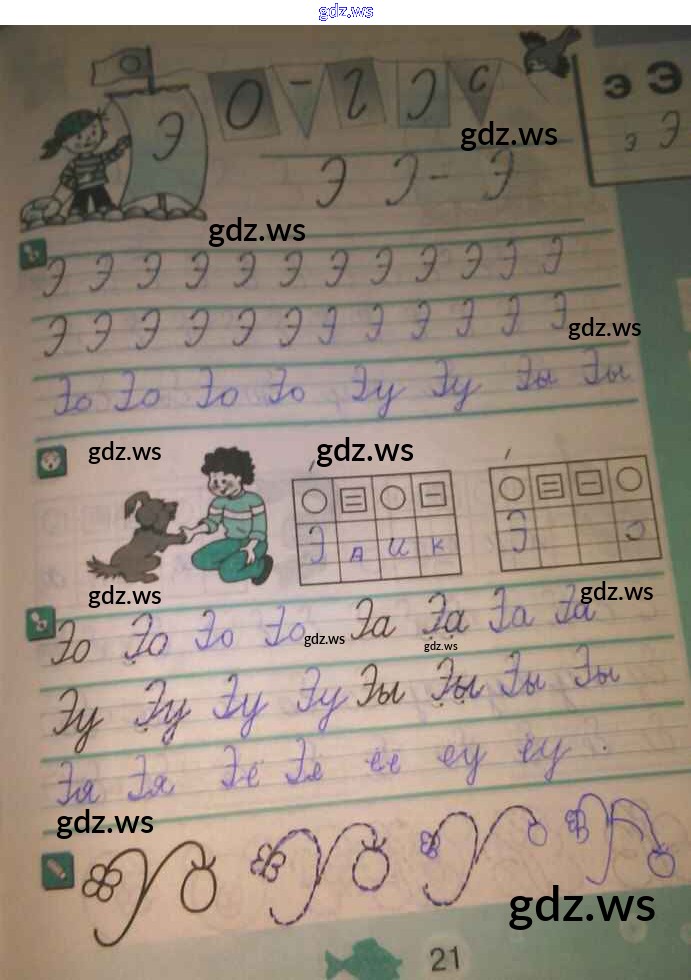 gdz.ws
Э О - г Э с э Э
gdz.ws
э Э
Э Э - Э
gdz.ws
Э Э Э Э Э Э Э Э Э Э Э Э
Э Э Э Э Э Э Э Э Э Э Э Э
gdz.ws
Эо Эо Эо Эо Эу Эу Эы Эы
gdz.ws gdz.ws
Э д и к Э о
gdz.ws gdz.ws
Эо Эо Эо Эо gdz.ws Эа Эа gdz.ws Эа Эа
Эу Эу Эу Эу Эы Эы Эы Эы
Эя Эя Эе Эе ее еу еу
gdz.ws
gdz.ws
21